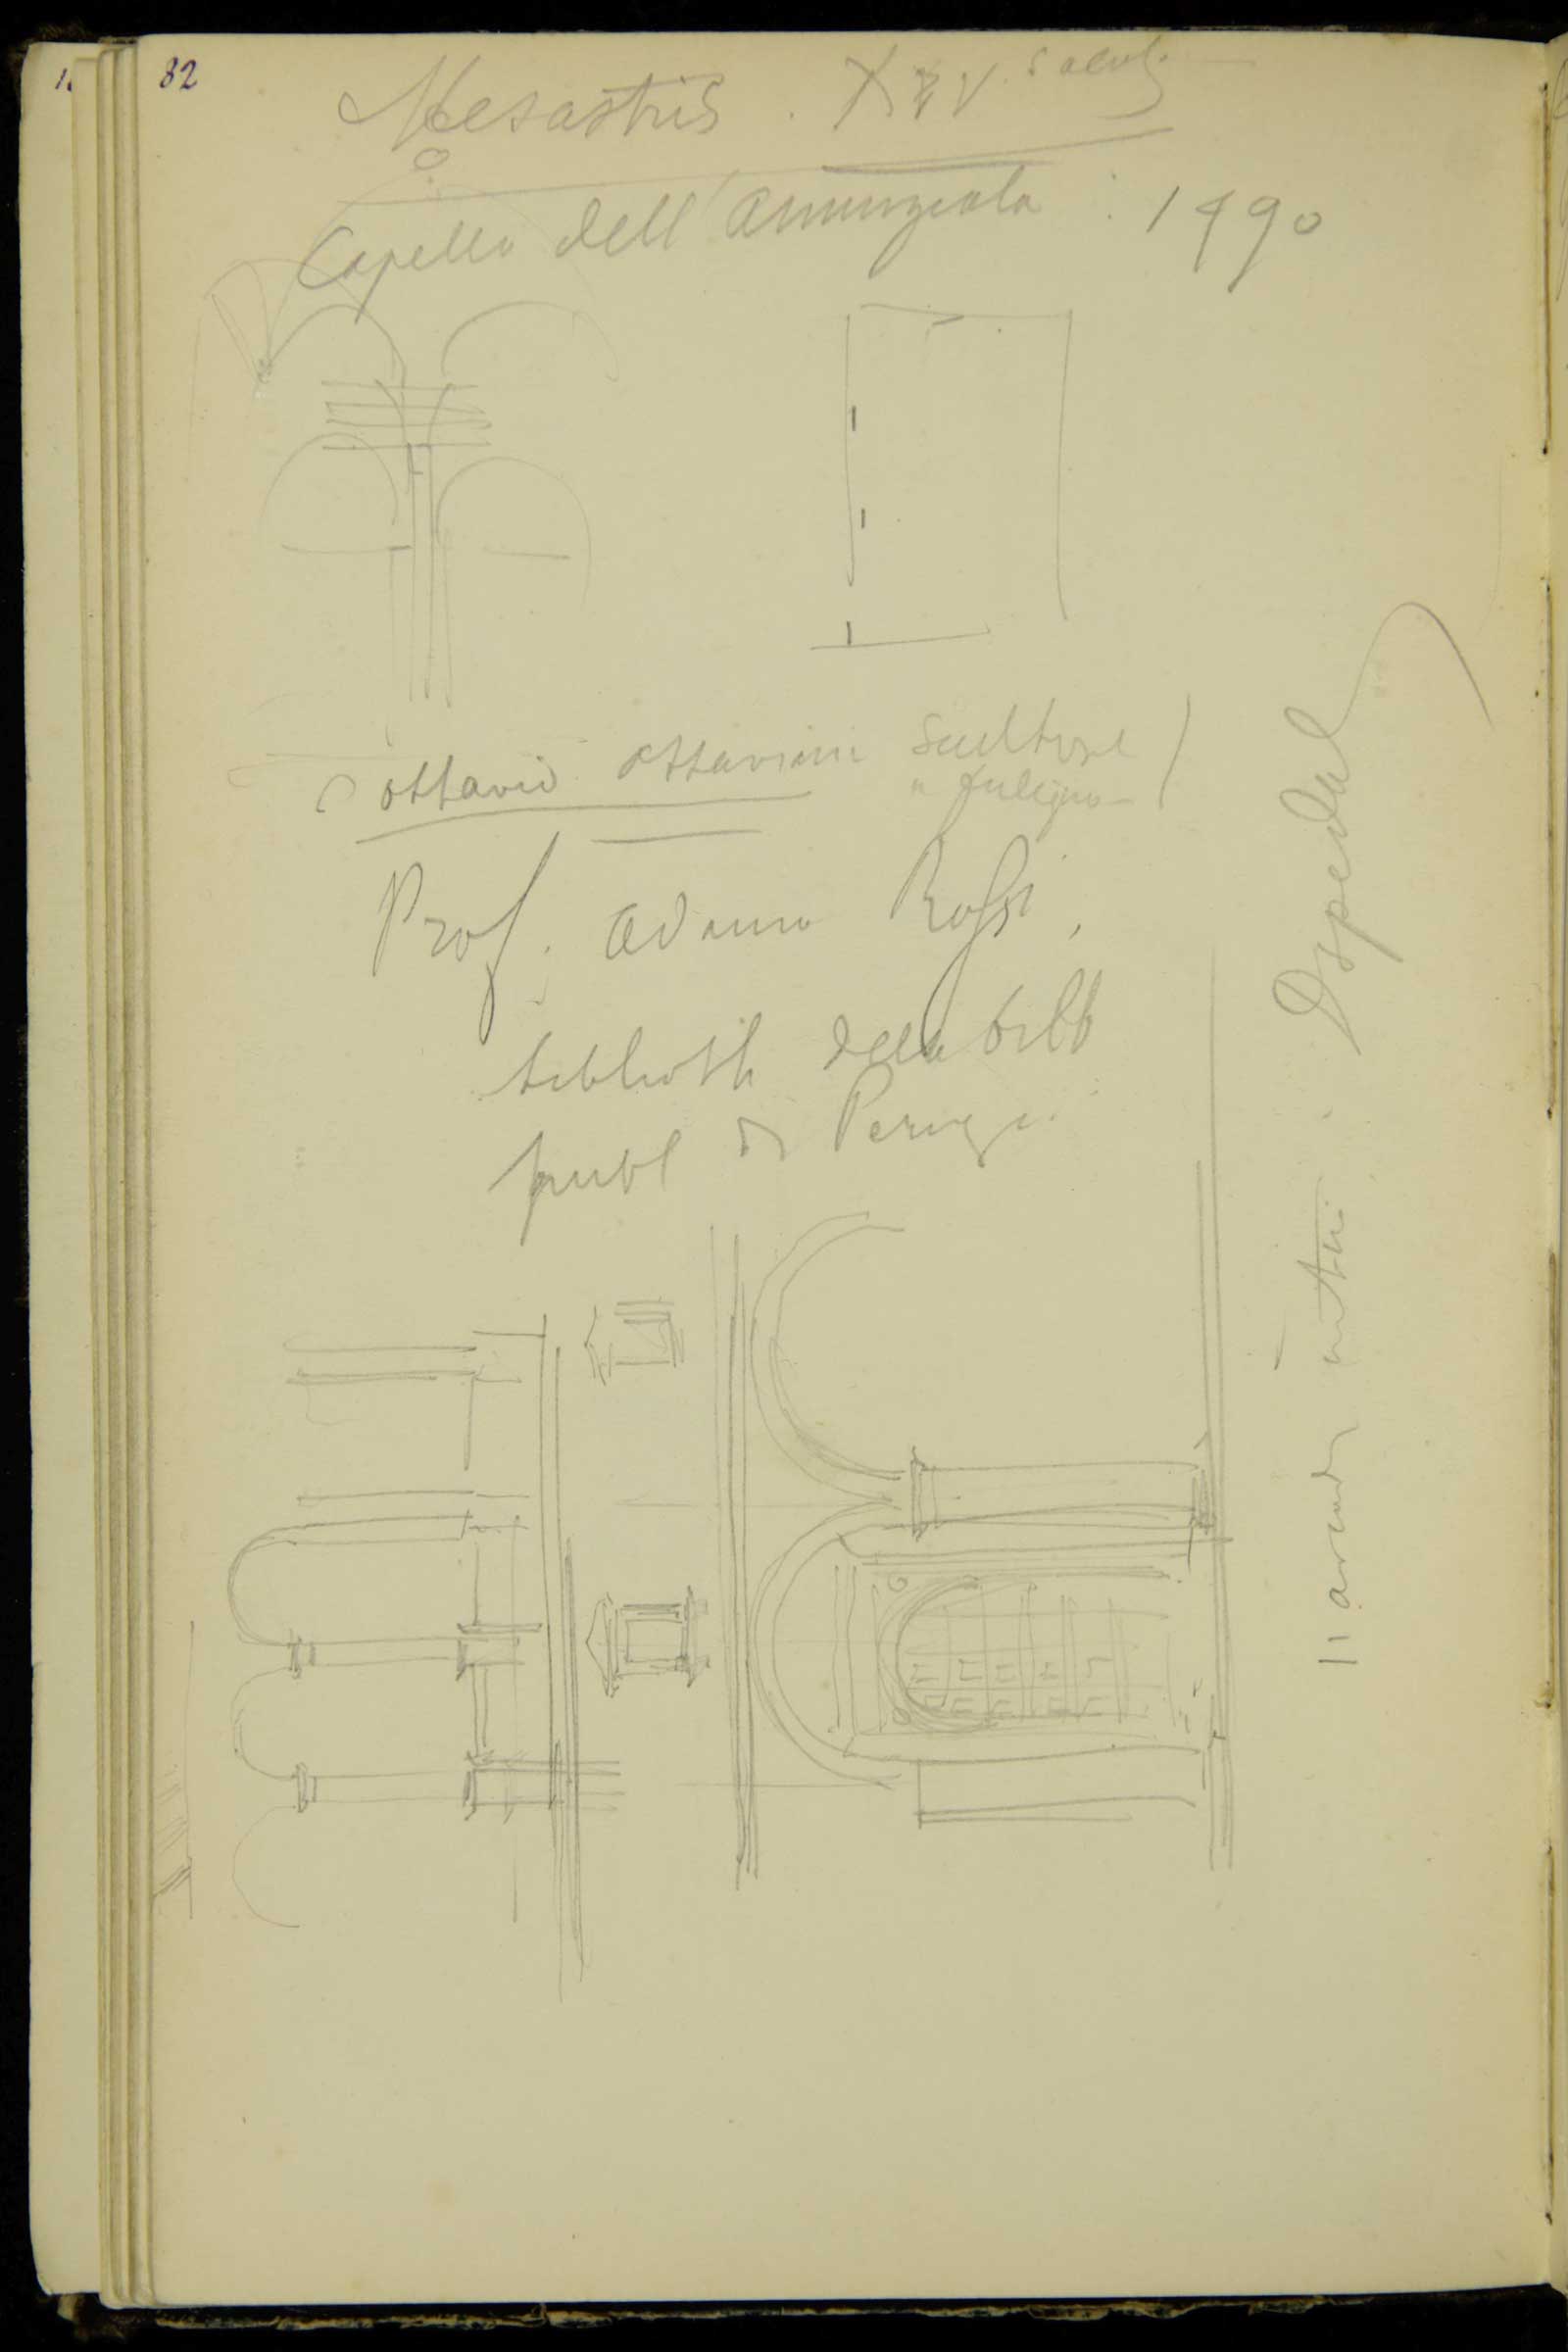 82
Mesastris. XIV
Capella dell'Annunziata : 1490
ottavio ottaviani Scultore
a fuligno
Prof. Adamo Rossi,
biblioth della bibb
publ di Perugi
11 arcadi Ospedal